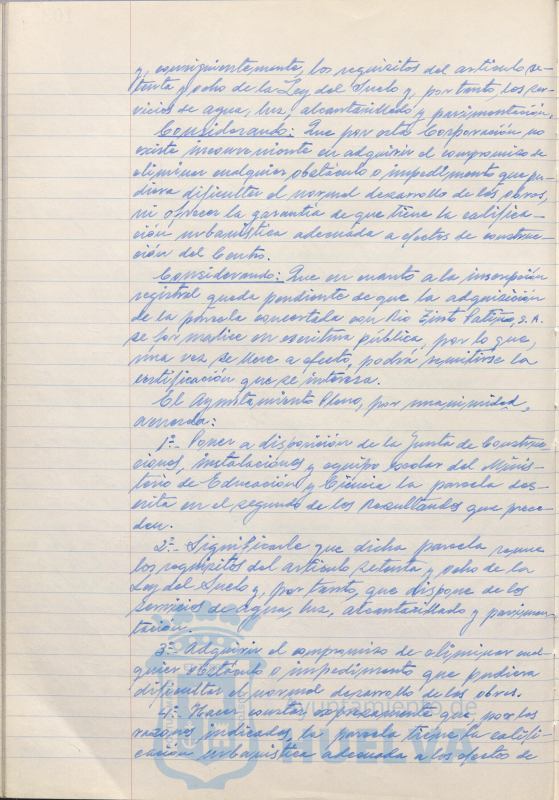 y, consiguientemente, los requisitos del artículo se-
tenta y ocho de la Ley del Suelo y, por tanto, los ser-
vicios de agua, luz, alcantarillado y pavimentación.
Considerando: Que por esta Corporación no
existe inconveniente en adquirir el compromiso de
eliminar cualquier obstáculo o impedimento que pu-
diera dificultar el normal desarrollo de las obras,
ni ofrecer la garantía de que tiene la califica-
ción urbanística adecuada a efectos de construc-
ción del Centro.
Considerando: Que en cuanto a la inscripción
registral queda pendiente de que la adquisición
de la parcela concertada con Rio Tinto Patiño, S.A.
se formalice en escritura pública, por lo que,
una vez se lleve a efecto, podrá remitirse la
certificación que se interesa.
El Ayuntamiento Pleno, por unanimidad,
acuerda:
1º.- Poner a disposición de la Junta de Construc-
ciones, instalaciones y equipo escolar del Minis-
terio de Educación y Ciencia la parcela des-
crita en el segundo de los Resultandos que prece-
den.
2º.- Significarle que dicha parcela reune
los requisitos del artículo setenta y ocho de la
Ley del Suelo y, por tanto, que dispone de los
servicios de agua, luz, alcantarillado y pavimen-
tación.
3º.- Adquirir el compromiso de eliminar cual-
quier obstáculo o impedimento que pudiera
dificultar el normal desarrollo de las obras.
4º.- Hacer constar expresamente que, por las
razones indicadas, la parcela tiene la califi-
cación urbanística adecuada a los efectos de
ayuntamiento de
HUELVA